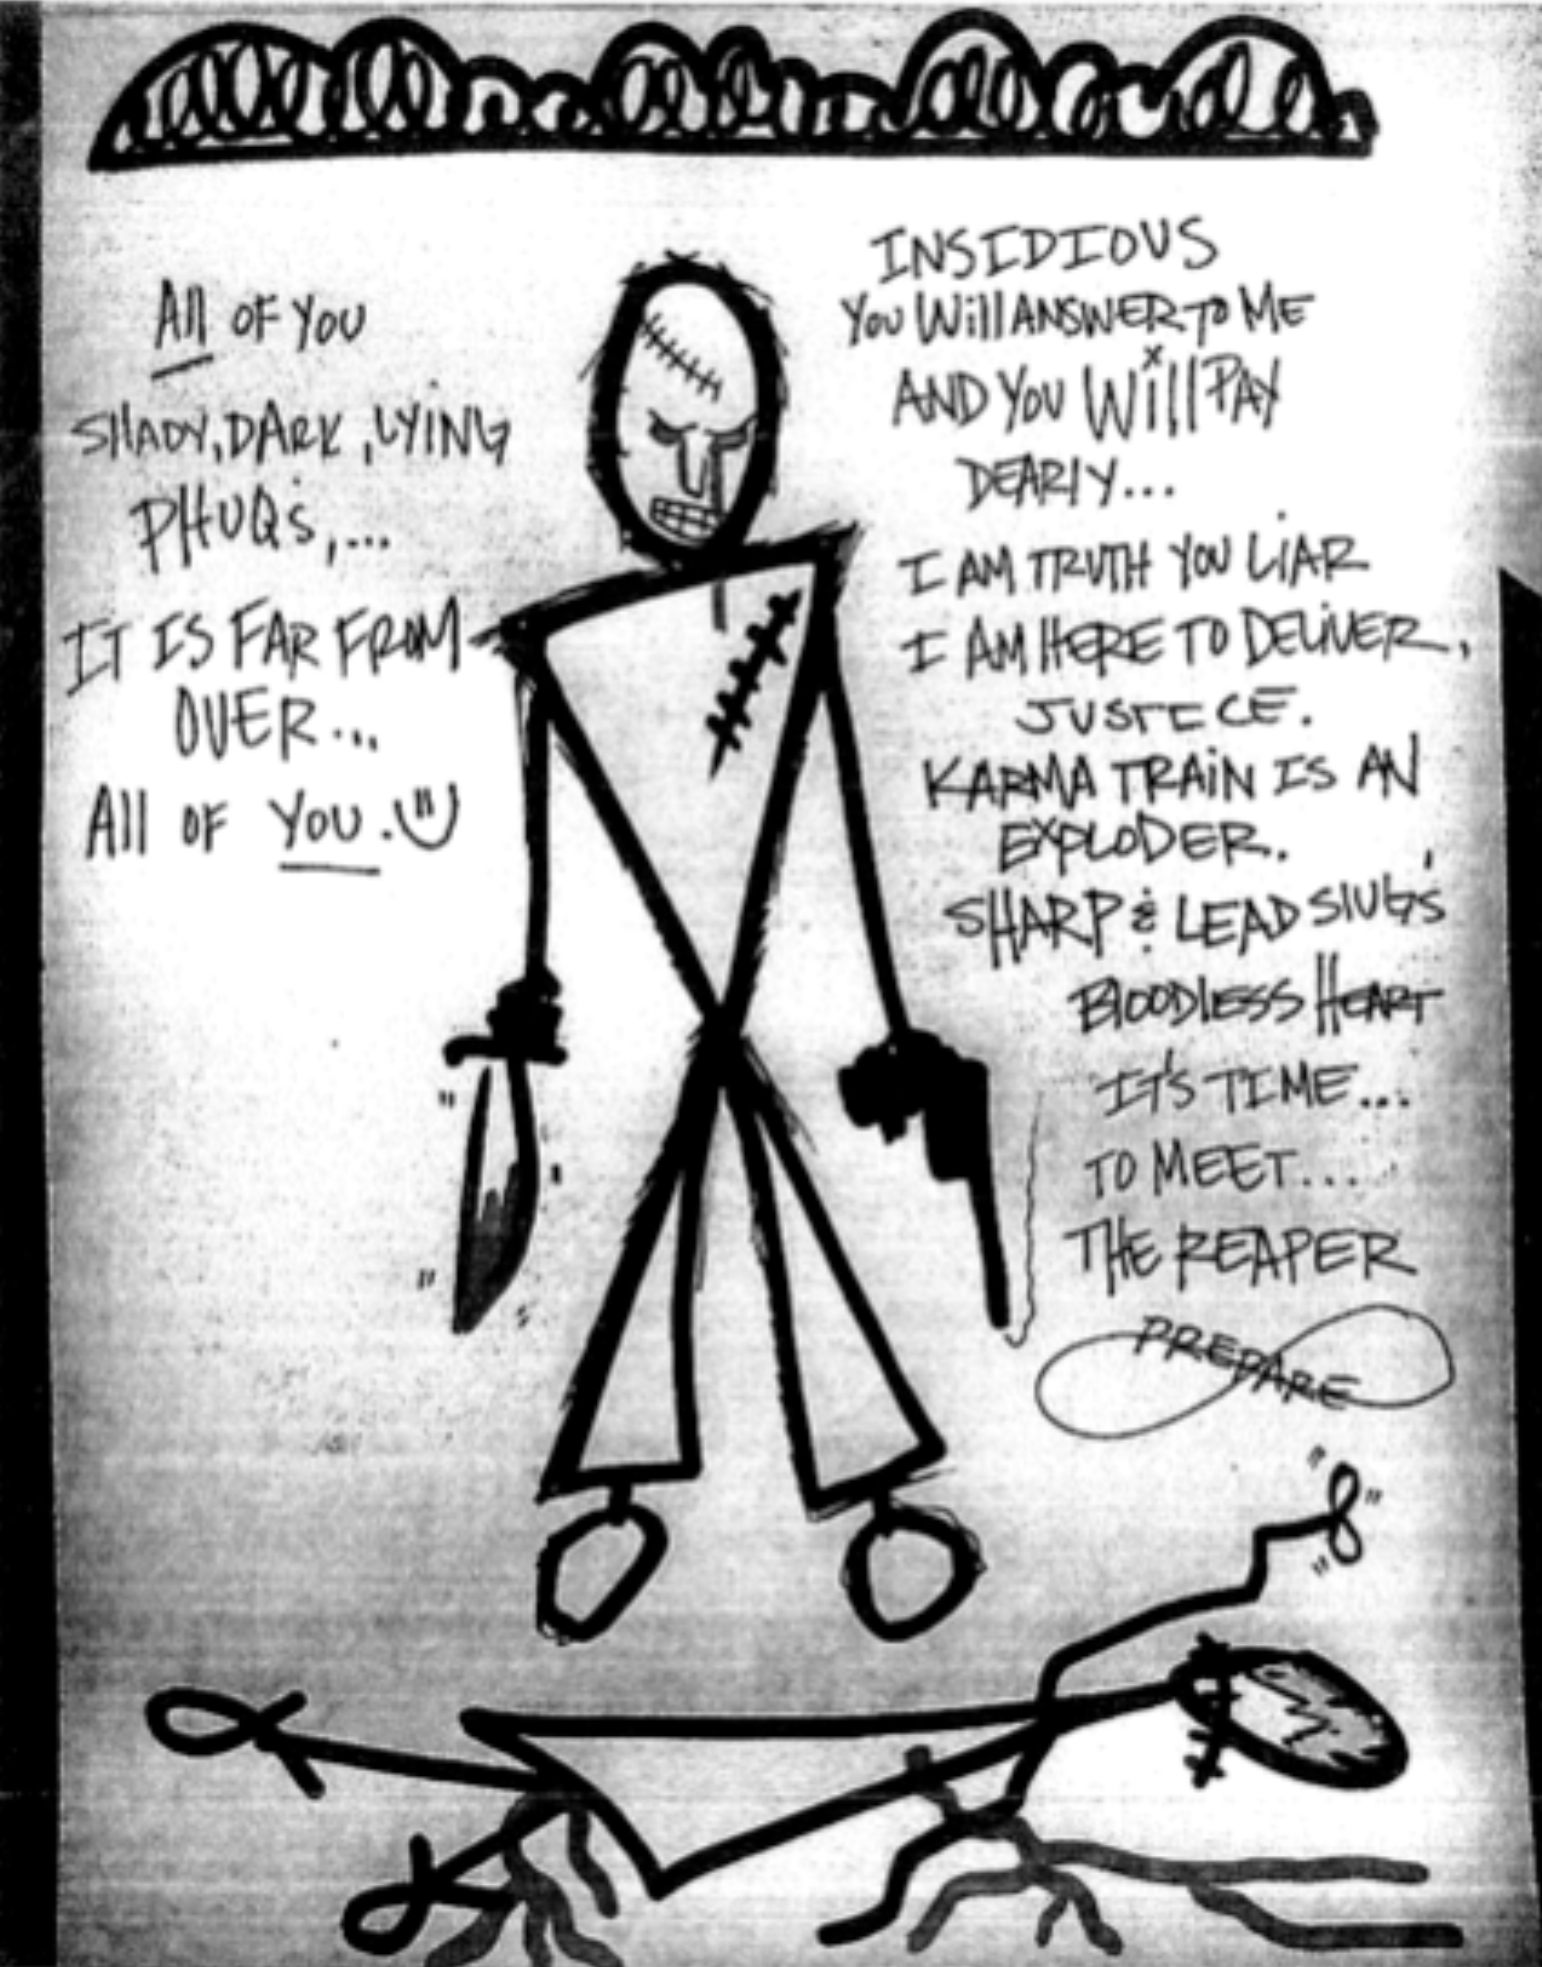 All OF YOU
SHADY, DARK, LYING
PHUQ's,...
IT IS FAR FROM
OVER...
All OF YOU.
INSIDIOUS
YOU Will ANSWER TO ME
AND YOU Will PAY
DEARLY...
I AM TRUTH YOU LIAR
I AM HERE TO DELIVER,
JUSTICE.
KARMA TRAIN IS AN
EXPLODER.
SHARP & LEAD SLUG'S
BLOODLESS HEART
IT'S TIME...
TO MEET...
THE REAPER
PREPARE